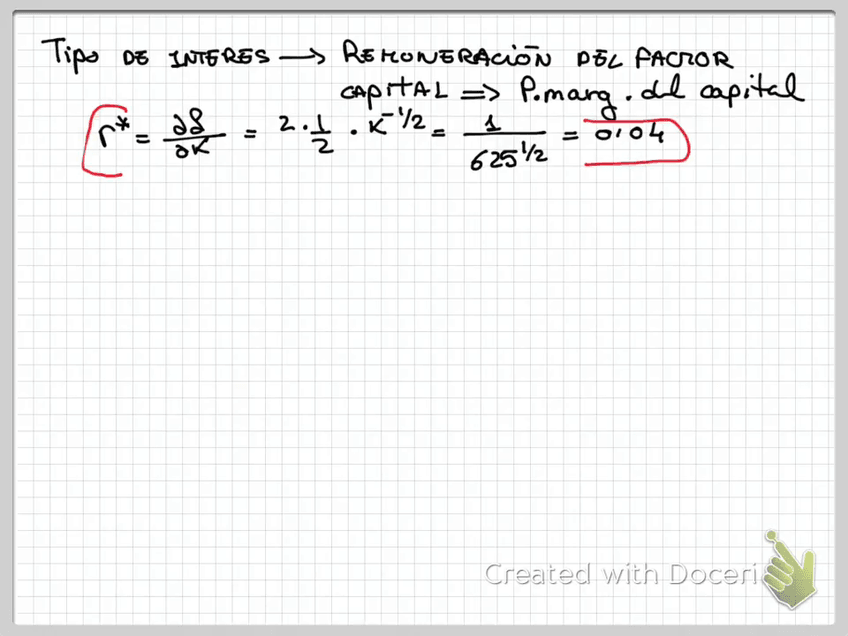 Tipo DE INTERES → REMUNERACIÓN DEL FACTOR
CAPITAL => P.marg. del capital
r* = ∂f/∂K = 2 · 1/2 · K^-1/2 = 1/625^1/2 = 0'04
Created with Doceri